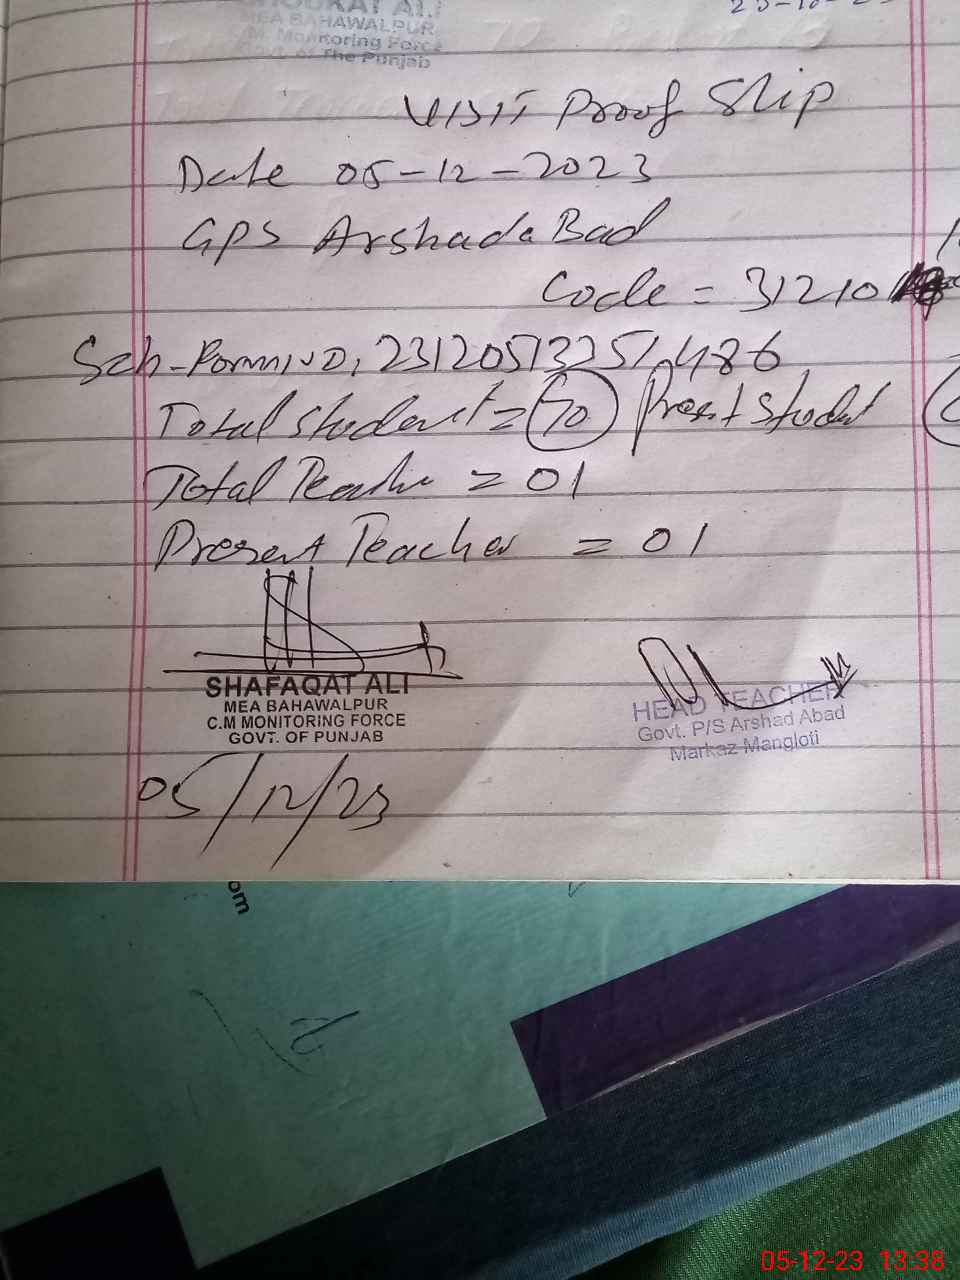 SHOUKAT ALI
MEA BAHAWALPUR
C.M. Monitoring Force
Govt. of The Punjab
Visit Proof Slip
Date 05-12-2023
GPS Arshada Bad
Code = 31210
Total Student = 70 Present Student
Total Teacher = 01
Present Teacher = 01
SHAFAQAT ALI
MEA BAHAWALPUR
C.M MONITORING FORCE
GOVT. OF PUNJAB
HEAD TEACHER
Govt. P/S Arshad Abad
Markaz Mangloti
05/12/23
om
05-12-23 13:38